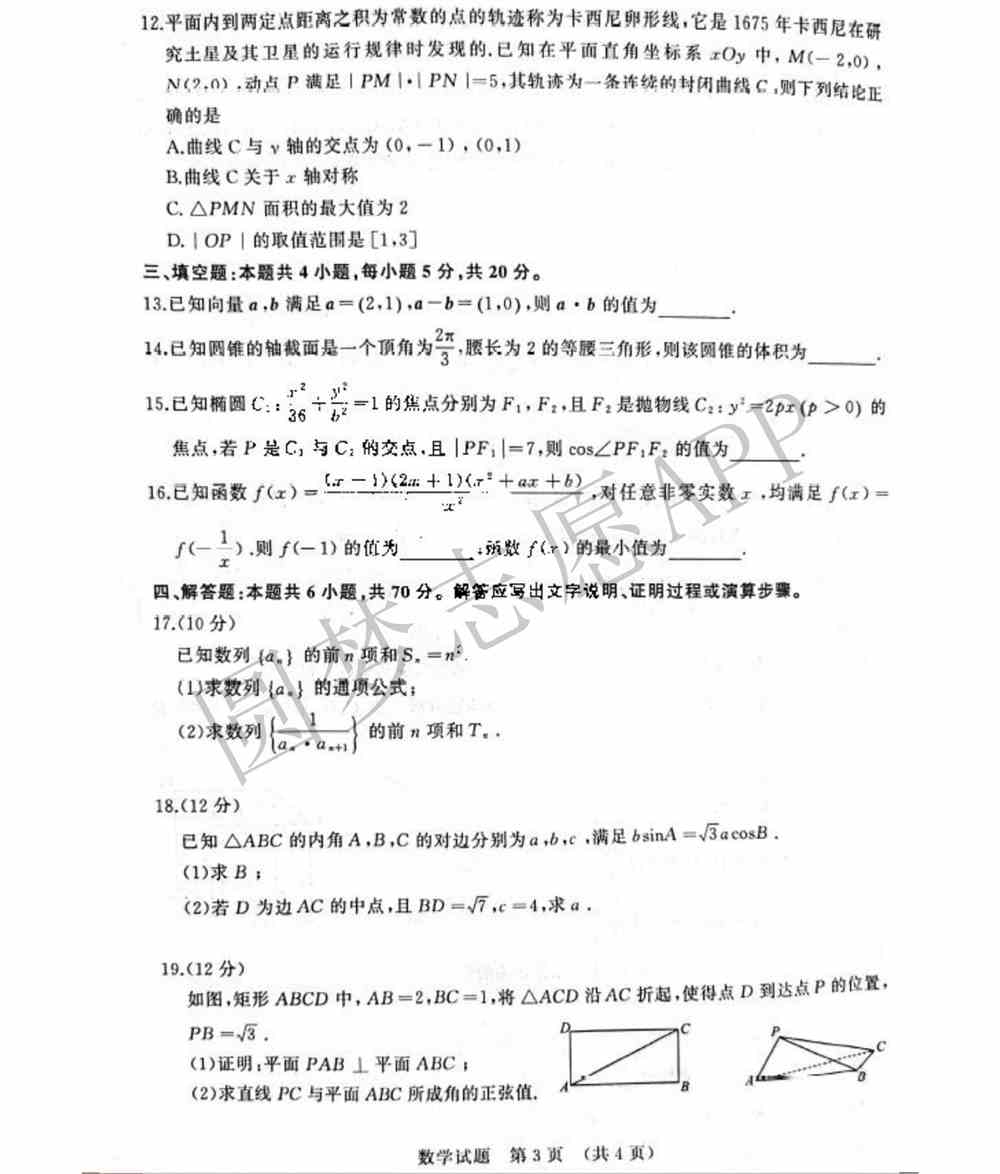 12.平面内到两定点距离之积为常数的点的轨迹称为卡西尼卵形线,它是 1675 年卡西尼在研
究土星及其卫星的运行规律时发现的.已知在平面直角坐标系 xOy 中, M(−2,0),
N(2,0),动点 P 满足|PM|·|PN|=5,其轨迹为一条连续的封闭曲线 C,则下列结论正
确的是
A.曲线 C 与 y 轴的交点为 (0,−1),(0,1)
B.曲线 C 关于 x 轴对称
C. △PMN 面积的最大值为 2
D.|OP|的取值范围是[1,3]
三、填空题:本题共 4 小题,每小题 5 分,共 20 分。
13.已知向量 a,b 满足 a=(2,1),a−b=(1,0),则 a·b 的值为______.
14.已知圆锥的轴截面是一个顶角为 2π/3,腰长为 2 的等腰三角形,则该圆锥的体积为______.
15.已知椭圆 C₁: x²/36 + y²/b² =1 的焦点分别为 F₁,F₂,且 F₂ 是抛物线 C₂: y²=2px(p>0) 的
焦点,若 P 是 C₁ 与 C₂ 的交点,且|PF₁|=7,则 cos∠PF₁F₂ 的值为______.
16.已知函数 f(x)= (x−1)(2x+1)(x²+ax+b)/x² ,对任意非零实数 x,均满足 f(x)=
f(−1/x).则 f(−1) 的值为______;函数 f(x) 的最小值为______.
四、解答题:本题共 6 小题,共 70 分。解答应写出文字说明、证明过程或演算步骤。
17.(10 分)
已知数列{aₙ}的前 n 项和 Sₙ=n².
(1)求数列{aₙ}的通项公式;
(2)求数列{1/(aₙ·aₙ₊₁)}的前 n 项和 Tₙ.
18.(12 分)
已知 △ABC 的内角 A,B,C 的对边分别为 a,b,c,满足 bsinA=√3acosB.
(1)求 B;
(2)若 D 为边 AC 的中点,且 BD=√7,c=4,求 a.
19.(12 分)
如图,矩形 ABCD 中,AB=2,BC=1,将 △ACD 沿 AC 折起,使得点 D 到达点 P 的位置,
PB=√3.
(1)证明:平面 PAB⊥平面 ABC;
(2)求直线 PC 与平面 ABC 所成角的正弦值.
D C
A B
P C
A B
数学试题 第 3 页 (共 4 页)
圆梦志愿APP